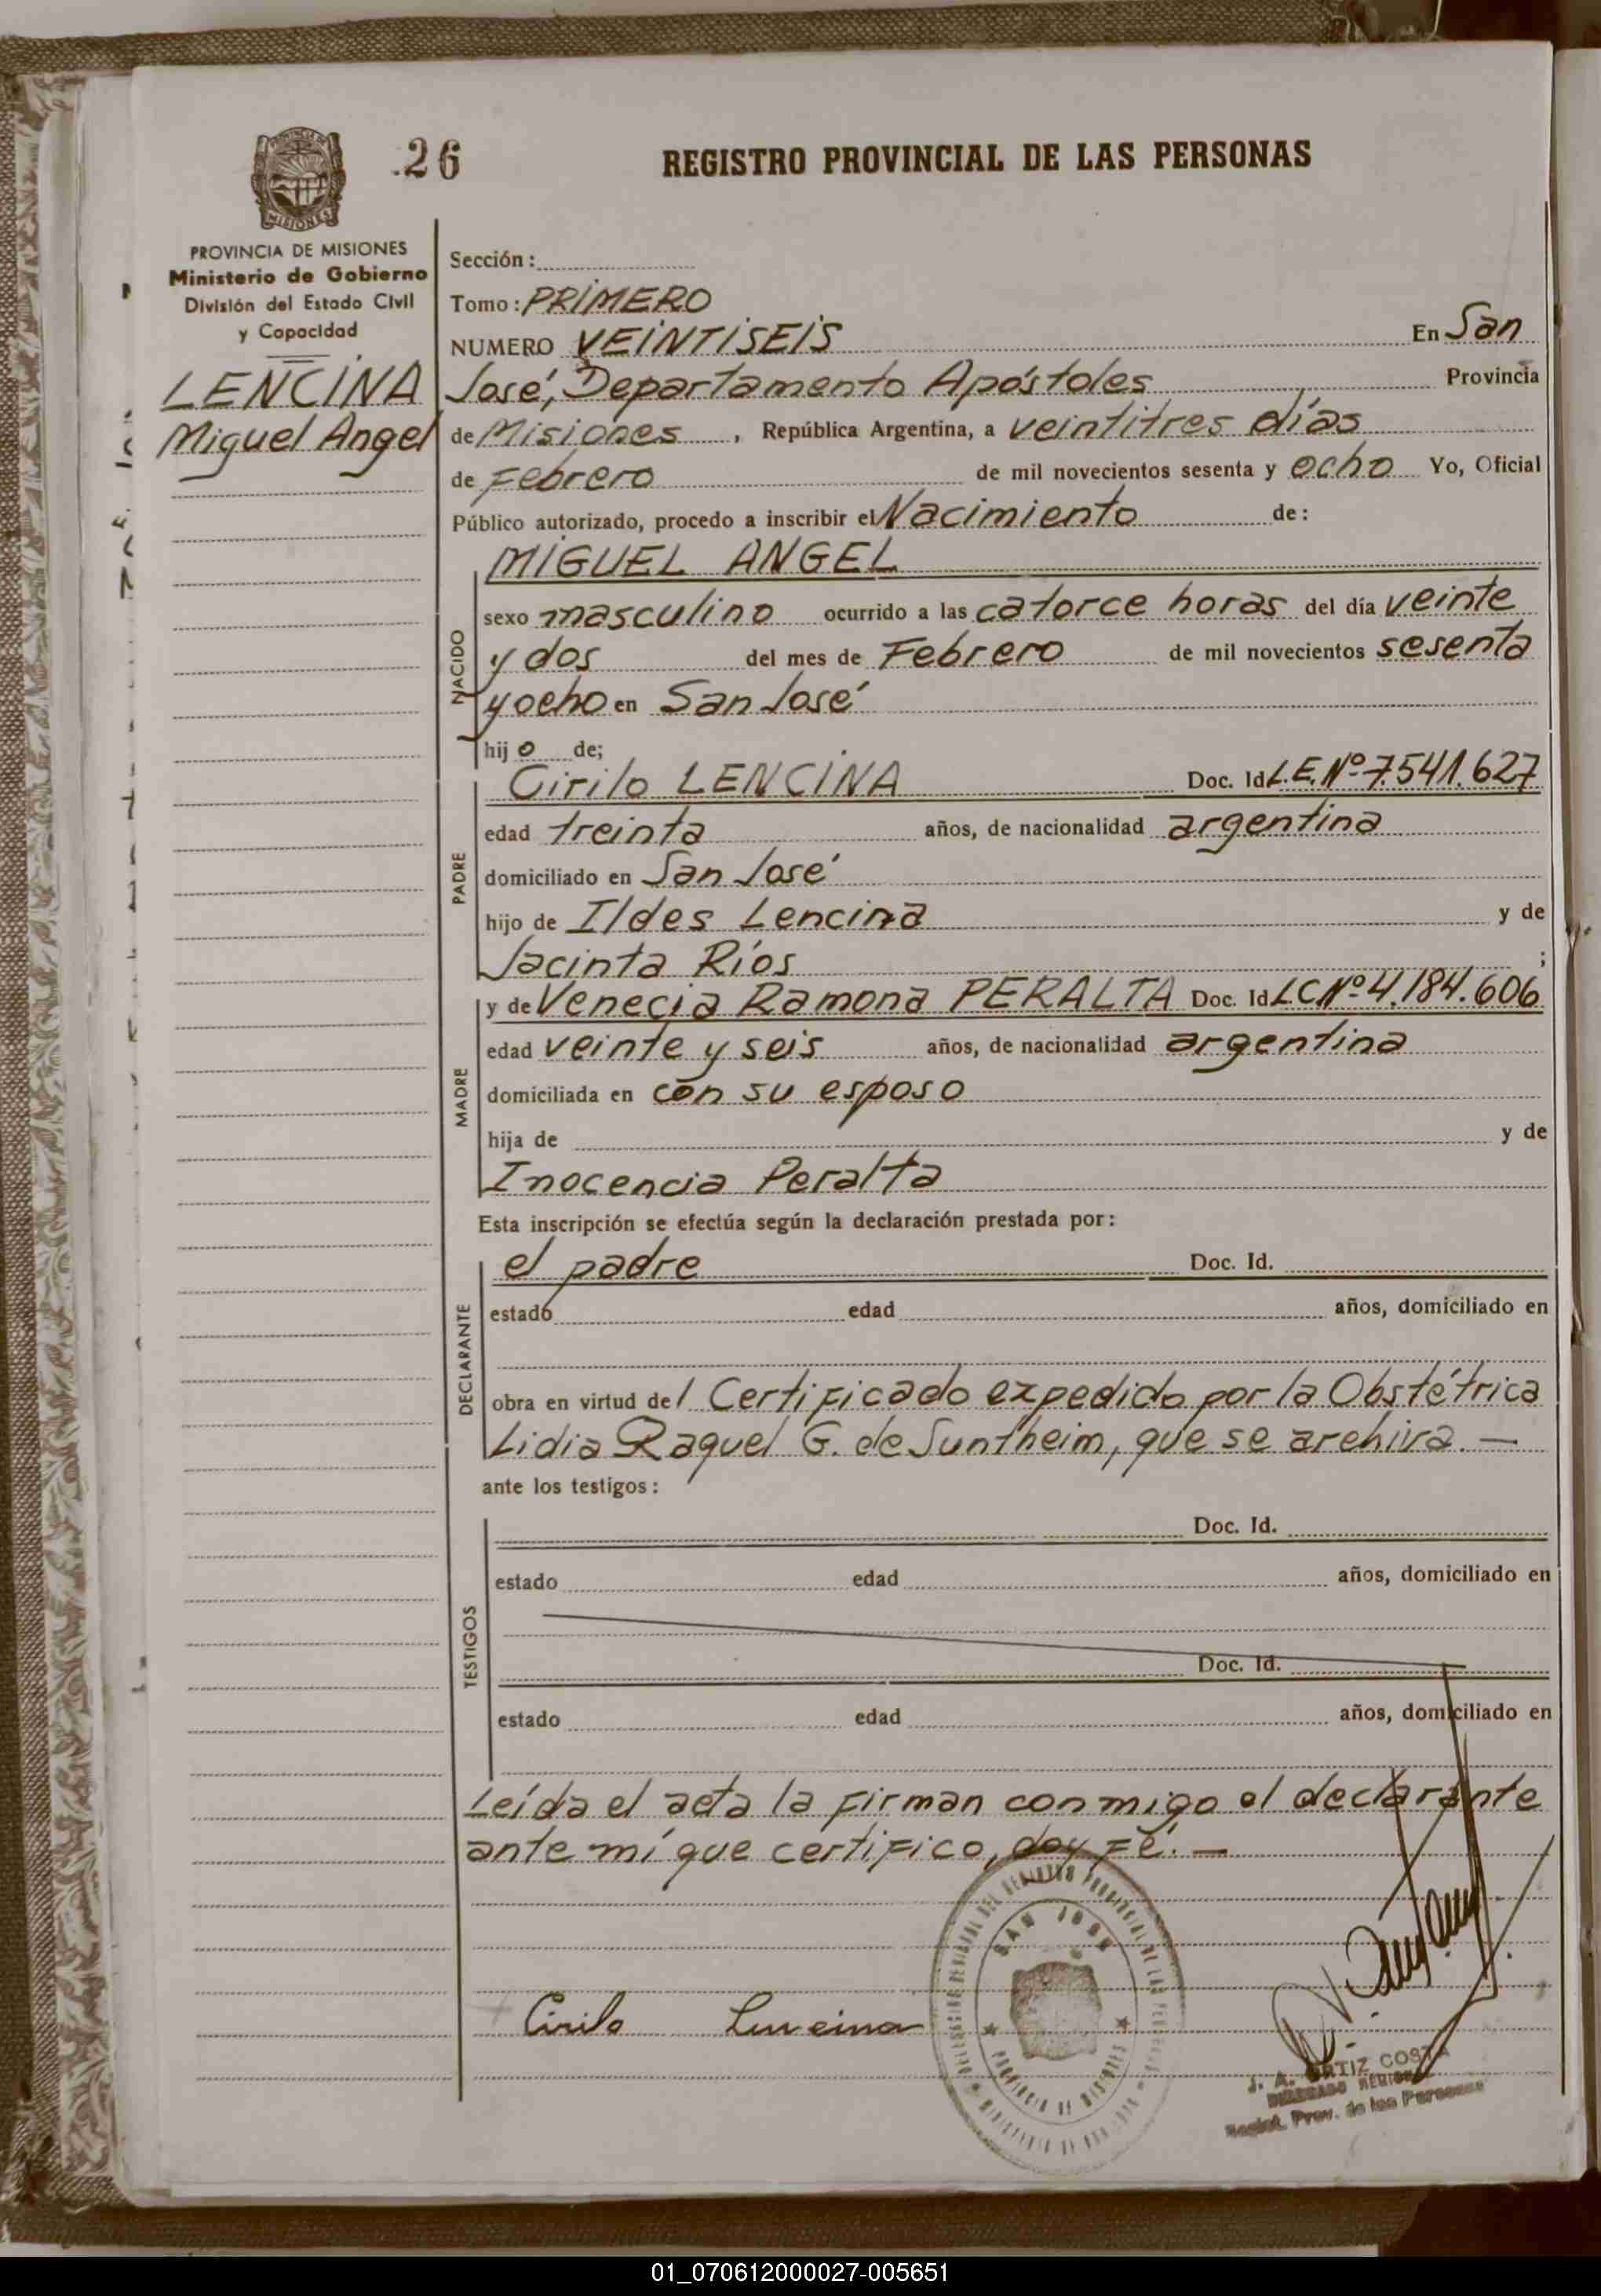 26
REGISTRO PROVINCIAL DE LAS PERSONAS
MISIONES
PROVINCIA DE MISIONES
Ministerio de Gobierno
División del Estado Civil
y Capacidad
LENCINA
Miguel Angel
Sección:
Tomo: PRIMERO
NUMERO VEINTISEIS En San
José, Departamento Apóstoles Provincia
de Misiones, República Argentina, a veintitres días
de Febrero de mil novecientos sesenta y ocho Yo, Oficial
Público autorizado, procedo a inscribir el Nacimiento de:
MIGUEL ANGEL
NACIDO
sexo masculino ocurrido a las catorce horas del día veinte
y dos del mes de Febrero de mil novecientos sesenta
y ocho en San José
hijo de;
PADRE
Cirilo LENCINA Doc. Id L.E. Nº 7.541.627
edad treinta años, de nacionalidad argentina
domiciliado en San José
hijo de Ildes Lencina y de
Jacinta Ríos ;
MADRE
y de Venecia Ramona PERALTA Doc. Id L.C Nº 4.184.606
edad veinte y seis años, de nacionalidad argentina
domiciliada en con su esposo
hija de y de
Inocencia Peralta
Esta inscripción se efectúa según la declaración prestada por:
DECLARANTE
el padre Doc. Id.
estado edad años, domiciliado en
obra en virtud del Certificado expedido por la Obstétrica
Lidia Raquel G. de Suntheim, que se archiva. —
ante los testigos:
TESTIGOS
Doc. Id.
estado edad años, domiciliado en
Doc. Id.
estado edad años, domiciliado en
Leída el acta la firman conmigo el declarante
ante mí que certifico, doy Fé. —
SAN JOSE
PROVINCIA DE MISIONES
Cirilo Lencina
J. A. ORTIZ COSTA
DELEGADO
Regist. Prov. de las Personas
01_070612000027-005651